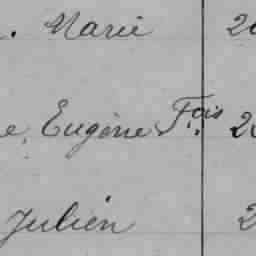 . Marie 2
e, Eugène Fçis 2
Julien 2